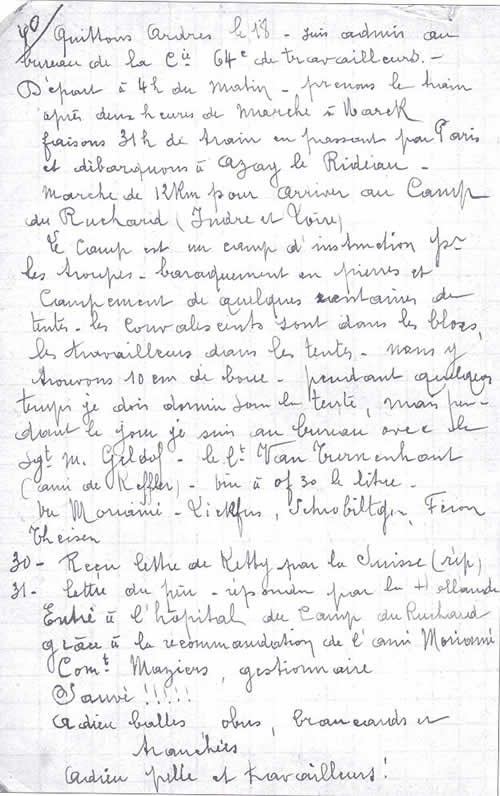 40/ Quittons Ardres le 18 - suis admis au
bureau de la Cie 64e de travailleurs. -
Départ à 4h du matin - prenons le train
après deux heures de marche à
faisons 31h de train en passant par Paris
et débarquons à Azay le Rideau -
marche de 12Km pour arriver au Camp
du Ruchard (Indre et Loire)
Le Camp est un camp d'instruction pr
les troupes - baraquement en pierres et
Campement de quelques centaines de
tentes - les convalescents sont dans les blocs,
les travailleurs dans les tentes - nous y
trouvons 10 cm de boue - pendant quelques
temps je dois dormir sous la tente, mais pen-
dant le jour je suis au bureau avec le
Sgt M. - le Lt Van Turnenhout
(ami de Keffler) - vin à 0f 30 le litre.
Vu Moriamé - , , Féron
Theisen
30 - Reçu lettre de Ketty par la Suisse (rép)
31 - lettre du père - répondu par la Hollande
Entré à l'hôpital du Camp du Ruchard
grâce à la recommandation de l'ami Moriamé
Comt Maziers, gestionnaire
Sauvé !!!!!
Adieu balles obus, brancards et
tranchées
Adieu pelle et travailleurs !